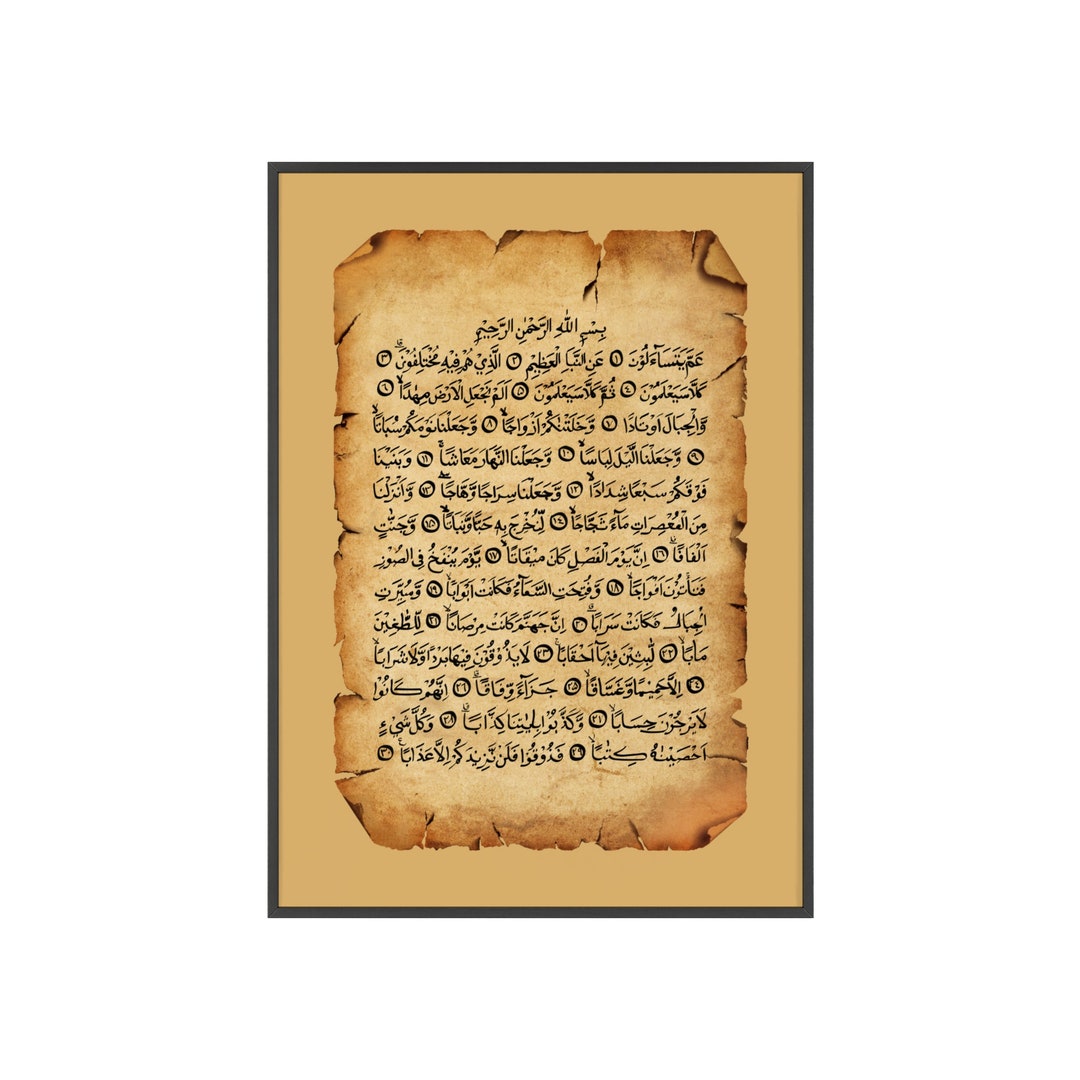 بِسْمِ اللّٰهِ الرَّحْمٰنِ الرَّحِيْمِ
عَمَّ يَتَسَآءَلُوْنَ ۝١ عَنِ النَّبَاِ الْعَظِيْمِ ۝٢ الَّذِيْ هُمْ فِيْهِ مُخْتَلِفُوْنَۗ ۝٣
كَلَّا سَيَعْلَمُوْنَ ۝٤ ثُمَّ كَلَّا سَيَعْلَمُوْنَ ۝٥ اَلَمْ نَجْعَلِ الْاَرْضَ مِهٰدًاۙ ۝٦
وَّالْجِبَالَ اَوْتَادًا ۝٧ وَّخَلَقْنٰكُمْ اَزْوَاجًاۙ ۝٨ وَّجَعَلْنَا نَوْمَكُمْ سُبَاتًاۙ
۝٩ وَّجَعَلْنَا الَّيْلَ لِبَاسًاۙ ۝١٠ وَّجَعَلْنَا النَّهَارَ مَعَاشًاۚ ۝١١ وَبَنَيْنَا
فَوْقَكُمْ سَبْعًا شِدَادًاۙ ۝١٢ وَّجَعَلْنَا سِرَاجًا وَّهَّاجًاۖ ۝١٣ وَّاَنْزَلْنَا
مِنَ الْمُعْصِرٰتِ مَاۤءً ثَجَّاجًاۙ ۝١٤ لِّنُخْرِجَ بِهٖ حَبًّا وَّنَبَاتًاۙ ۝١٥ وَّجَنّٰتٍ
اَلْفَافًاۗ ۝١٦ اِنَّ يَوْمَ الْفَصْلِ كَانَ مِيْقَاتًاۙ ۝١٧ يَّوْمَ يُنْفَخُ فِى الصُّوْرِ
فَتَأْتُوْنَ اَفْوَاجًاۙ ۝١٨ وَّفُتِحَتِ السَّمَاۤءُ فَكَانَتْ اَبْوَابًاۙ ۝١٩ وَّسُيِّرَتِ
الْجِبَالُ فَكَانَتْ سَرَابًاۗ ۝٢٠ اِنَّ جَهَنَّمَ كَانَتْ مِرْصَادًاۙ ۝٢١ لِّلطّٰغِيْنَ
مَاٰبًاۙ ۝٢٢ لّٰبِثِيْنَ فِيْهَآ اَحْقَابًاۚ ۝٢٣ لَا يَذُوْقُوْنَ فِيْهَا بَرْدًا وَّلَا شَرَابًاۙ
۝٢٤ اِلَّا حَمِيْمًا وَّغَسَّاقًاۙ ۝٢٥ جَزَاۤءً وِّفَاقًاۗ ۝٢٦ اِنَّهُمْ كَانُوْا
لَا يَرْجُوْنَ حِسَابًاۙ ۝٢٧ وَّكَذَّبُوْا بِاٰيٰتِنَا كِذَّابًاۗ ۝٢٨ وَكُلَّ شَيْءٍ
اَحْصَيْنٰهُ كِتٰبًاۙ ۝٢٩ فَذُوْقُوْا فَلَنْ نَّزِيْدَكُمْ اِلَّا عَذَابًاۚ ۝٣٠